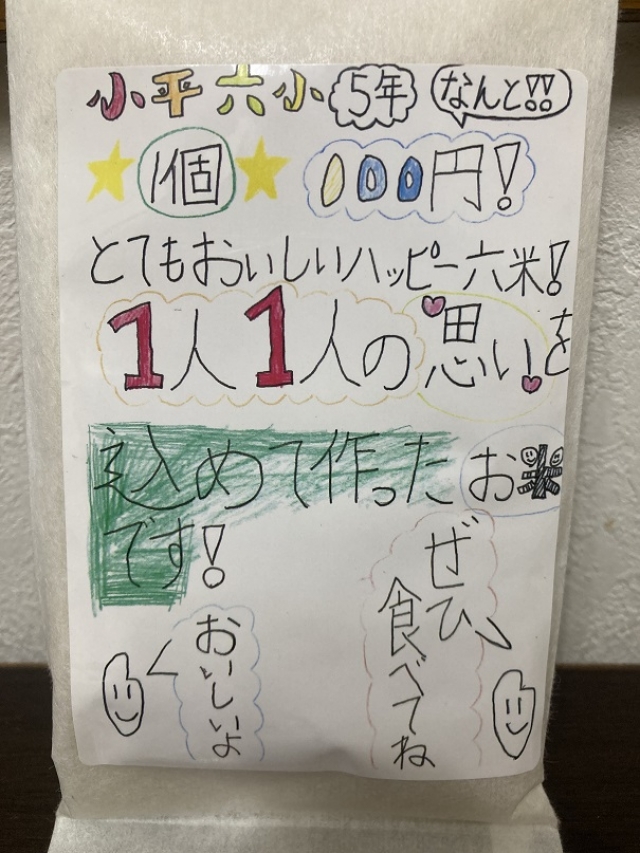 小平六小 5年 なんと!!
1個 100円!
とてもおいしいハッピー六米!
1人1人の思いを
込めて作ったお米
です!
ぜひ、
食べてね
おいしいよ